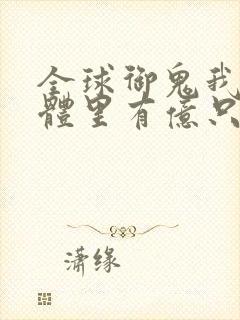 全球御鬼我
體里有億只
潇缘